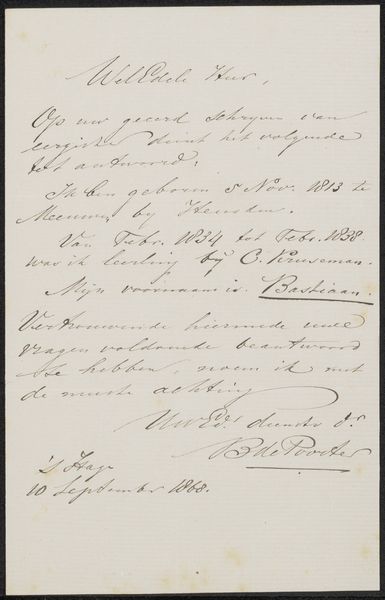 WelEdele Heer,
Op uw geeerd schryven van
eergister dient het volgende
tot antwoord:
Ik ben geboren 5 Nov. 1813 te
Meeuwen by Heusden.
Van Febr. 1834 tot Febr. 1838
was ik leerling by C. Kruseman.
Mijn voornaam is Bastiaan.
Vertrouwende hiermede uwe
vragen voldoende beantwoord
te hebben, noem ik met
de meeste achting
UwEds dienstv. dr.
B de Poorter
's Hage
10 September 1868.